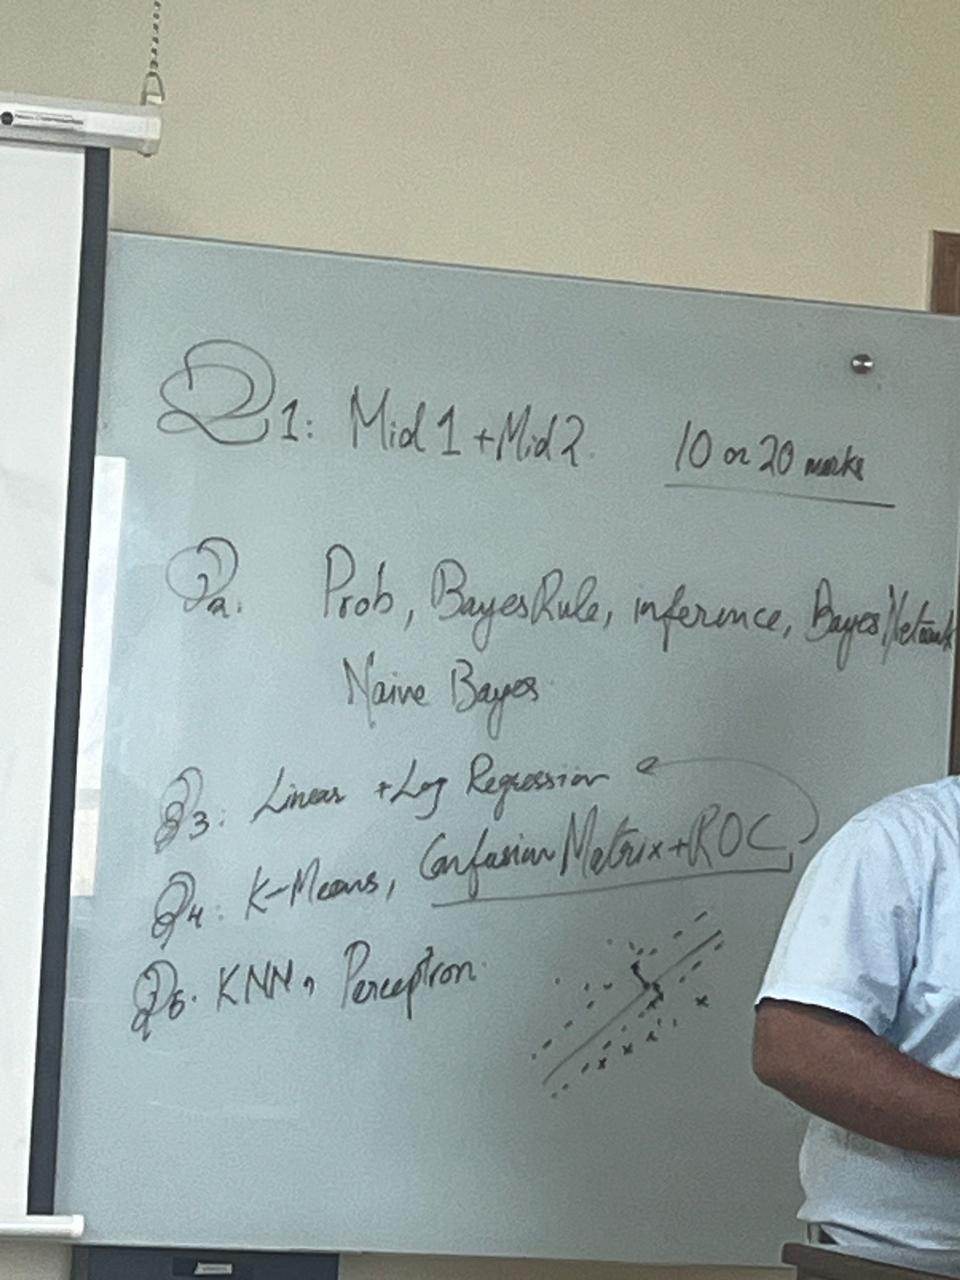 Q1: Mid 1 + Mid 2. 10 or 20 marks
Q2. Prob, Bayes Rule, inference, Bayes Network
Naive Bayes
Q3: Linear + Log Regression
Q4: K-Means, Confusion Matrix + ROC
Q5. KNN, Perceptron.